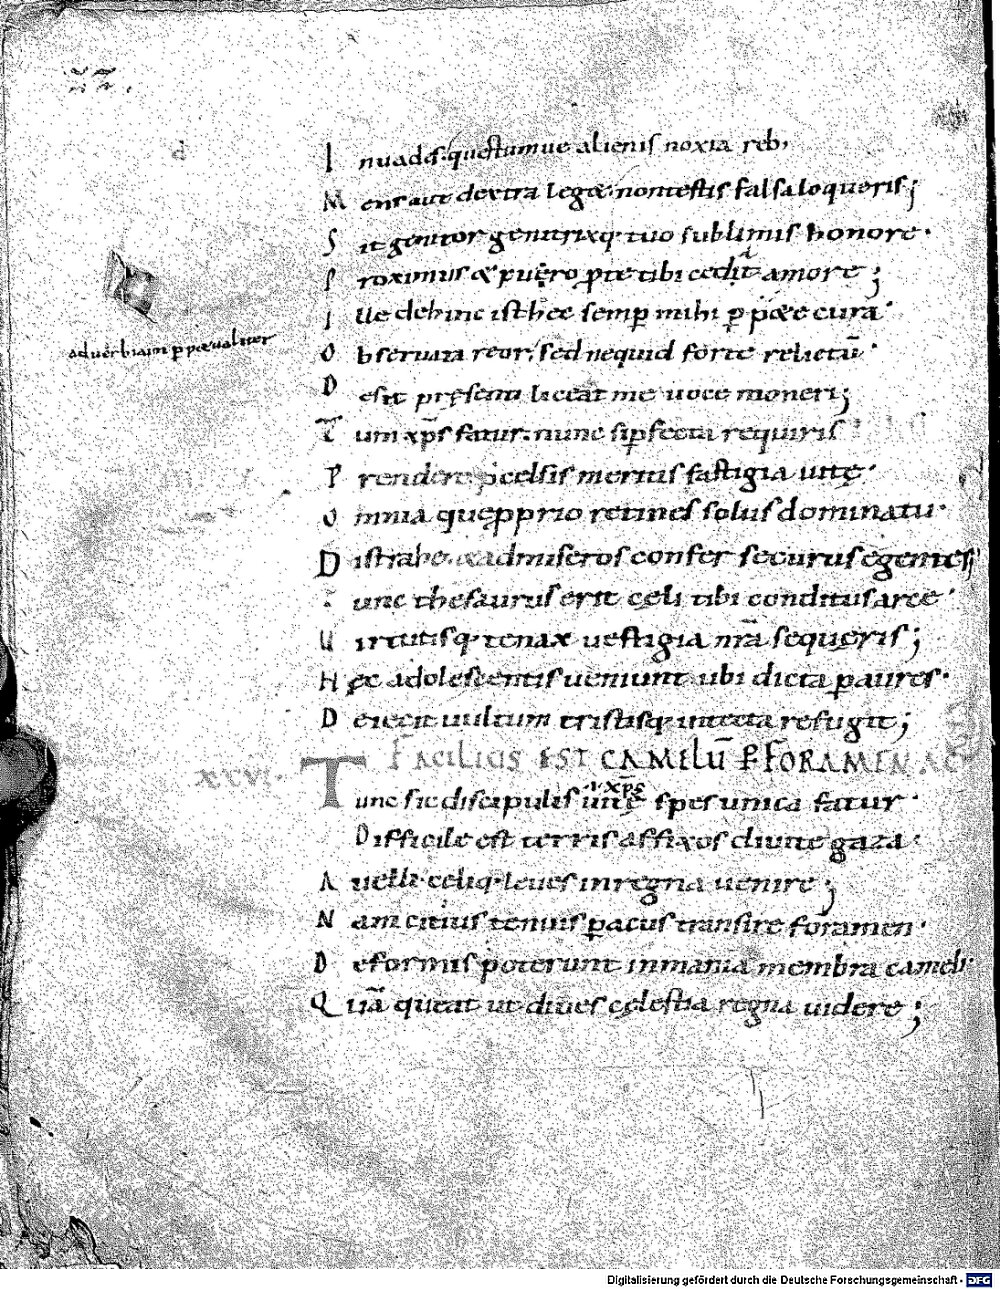 I nuades. questumue alienis noxia reb;
M ens aut dextra legat. nontestis falsa loqueris;
S it genitor genitrixq; tuo sublimis honore.
P roximus & puero p te tibi cedit amore;
I lle dehinc isthec semp mihi p p&e cura.
O bseruata reor. sed nequid forte relictū.
D esit presenti liceat me uoce moneri;
T um xp̄s fatur. nunc si pfecta requiris
P rendere picelsis meritis fastigia uitę.
O mnia quę pprio retines solus dominatu.
D istrahe. & ad miseros confer securus egentes;
T unc thesaurus erit cęli tibi conditus arce.
U irtutisq; tenax uestigia nr̄a sequeris;
H ęc adolescentis ueniunt ubi dicta p aures.
D eiecit uultum tristisq; intecta refugit;
aduerbium p p&ualiter
FACILIUS EST CAMELŪ P FORAMEN AC
XXVI.
T unc sic discipulis uitę spes unica fatur.
i. xp̄s
D ifficile est terris affixos diuite gaza.
A uelli. celiq; leues in regna uenire;
N am citius tenuis p acus transire foramen.
D eformis poterunt inmania membra cameli.
Q uā queat ut diues cęlestia regna uidere;
Digitalisierung gefördert durch die Deutsche Forschungsgemeinschaft - DFG